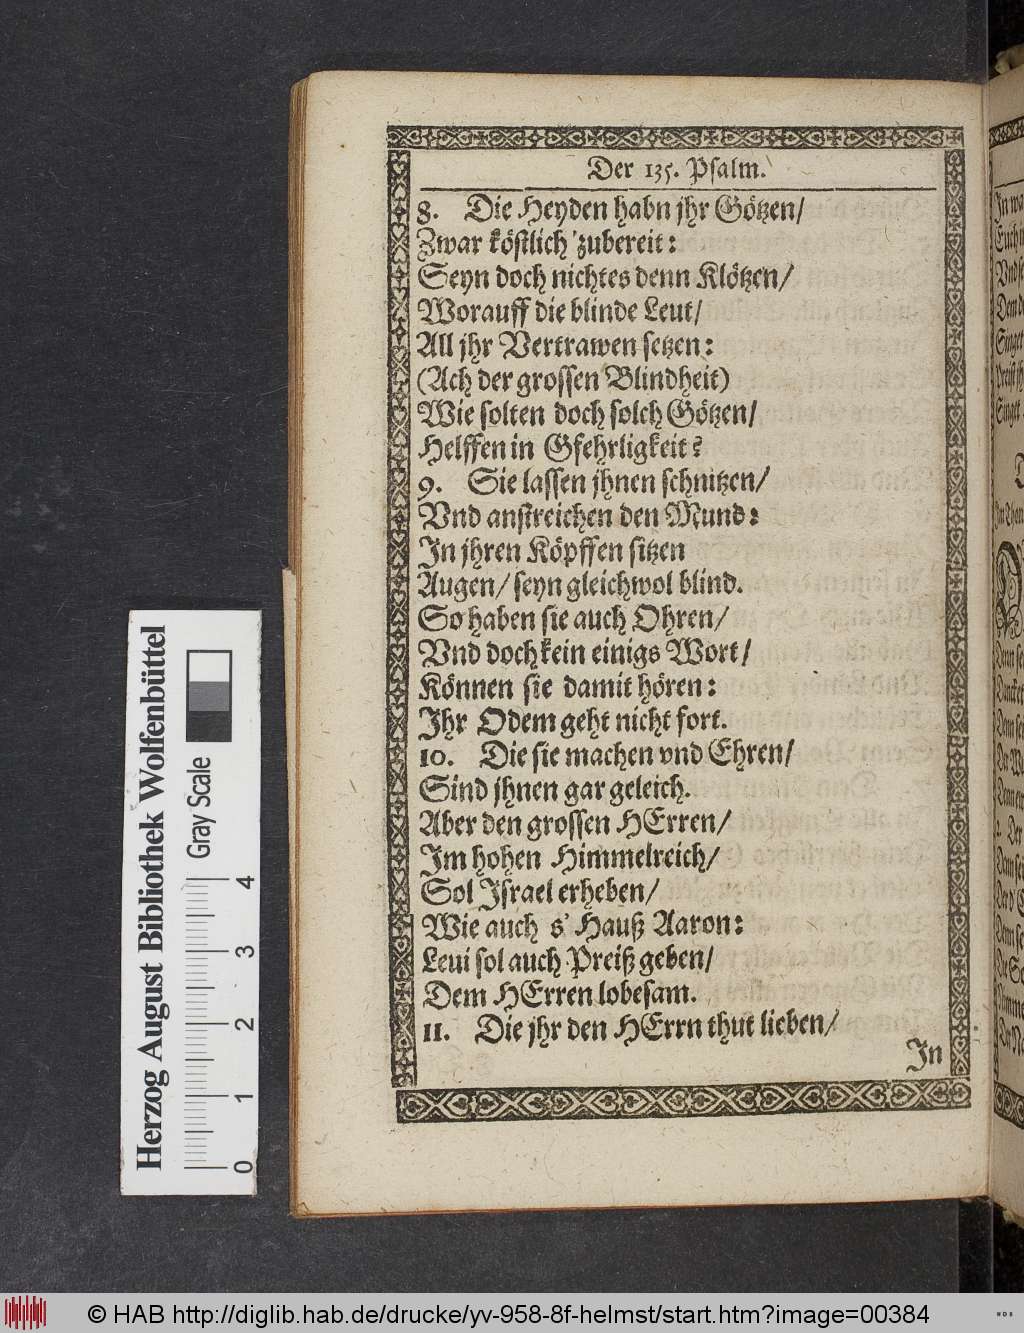 Der 135. Psalm.
8. Die Heyden habn jhr Götzen/
Zwar köstlich zubereit:
Seyn doch nichtes denn Klötzen/
Worauff die blinde Leut/
All jhr Vertrawen setzen:
(Ach der grossen Blindheit)
Wie solten doch solch Götzen/
Helffen in Gfehrligkeit?
9. Sie lassen jhnen schnitzen/
Vnd anstreichen den Mund:
In jhren Köpffen sitzen
Augen/ seyn gleichwol blind.
So haben sie auch Ohren/
Vnd doch kein einigs Wort/
Können sie damit hören:
Ihr Odem geht nicht fort.
10. Die sie machen vnd Ehren/
Sind jhnen gar geleich.
Aber den grossen HErren/
Im hohen Himmelreich/
Sol Israel erheben/
Wie auch s' Hauß Aaron:
Leui sol auch Preiß geben/
Dem HErren lobesam.
11. Die jhr den HErrn thut lieben/
In
Herzog August Bibliothek Wolfenbüttel
Gray Scale
0 1 2 3 4
© HAB http://diglib.hab.de/drucke/yv-958-8f-helmst/start.htm?image=00384